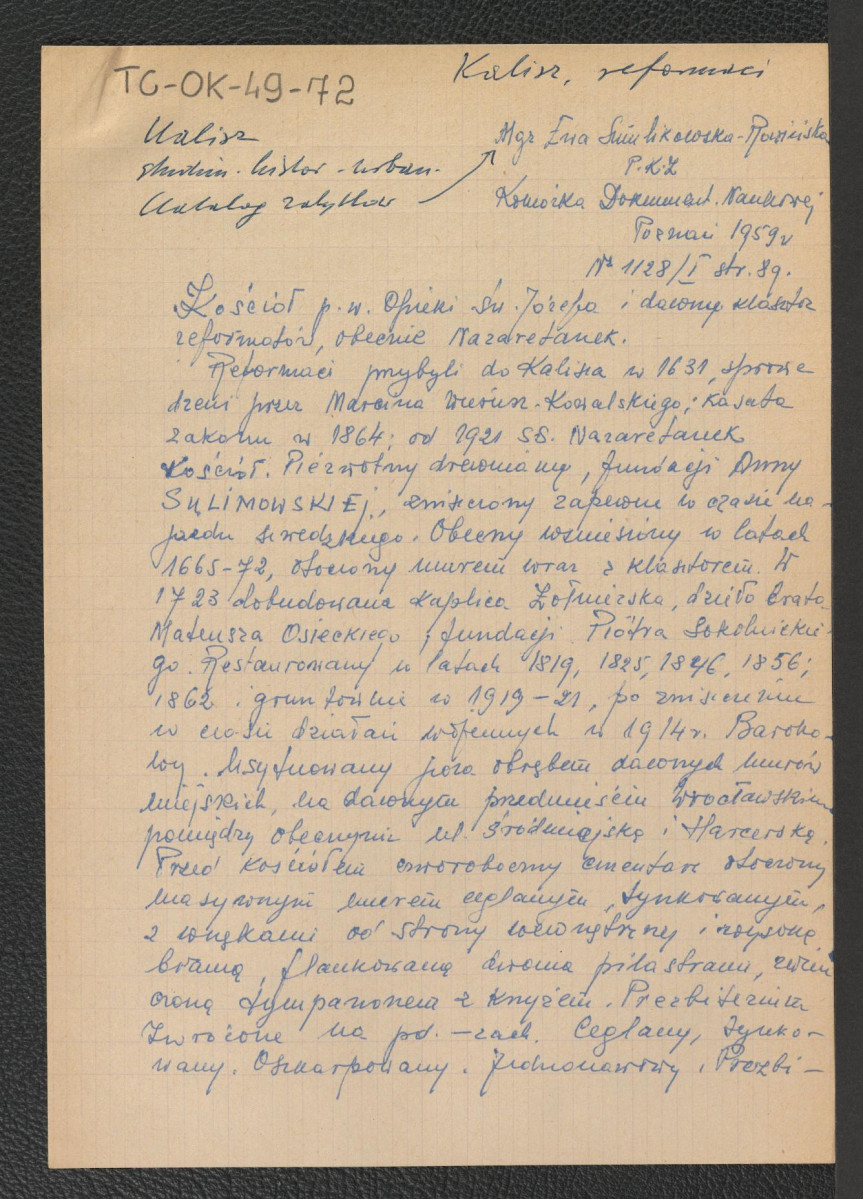 TG-OK-49-72
Kalisz, reformaci
Kalisz
studium histor - urban.
Katalog zabytków
Mgr Ewa
P.K.Z
Komórka Dokument. Naukowej
Poznań 1959 r
Nr 1128/I str. 89.
Kościół p.w. Opieki Św. Józefa i dawny klasztor
reformatów, obecnie Nazaretanek.
Reformaci przybyli do Kalisza w 1631, sprowa
dzeni przez Marcina Wierusz-Kowalskiego; kasata
zakonu w 1864; od 1921 SS. Nazaretanek
Kościół. Pierwotny drewniany, fundacji Anny
SULIMOWSKIEJ, zniszczony zapewne w czasie na-
jazdu szwedzkiego. Obecny wzniesiony w latach
1665-72, otoczony murem wraz z klasztorem. W
1723 dobudowana kaplica Żołnierska, dzieło brata
Mateusza Osieckiego, fundacji Piotra Sokolnickie-
go. Restaurowany w latach 1819, 1825, 1846, 1856;
1862 i gruntownie w 1919-21, po zniszczeniu
w czasie działań wojennych w 1914 r. Baroko-
wy. Usytuowany poza obrębem dawnych murów
miejskich, na dawnym przedmieściu Wrocławskim
pomiędzy obecnymi ul. Śródmiejską i Harcerską.
Przed kościołem czworoboczny cmentarz otoczony
masywnym murem ceglanym, tynkowanym,
z wnękami od strony wewnętrznej i wysoką
bramą, flankowaną dwoma pilastrami, zwień
czoną tympanonem z krzyżem. Prezbiterium
zwrócone na pd.-zach. Ceglany, tynko-
wany. Oszkarpowany. Jednonawowy. Prezbi-